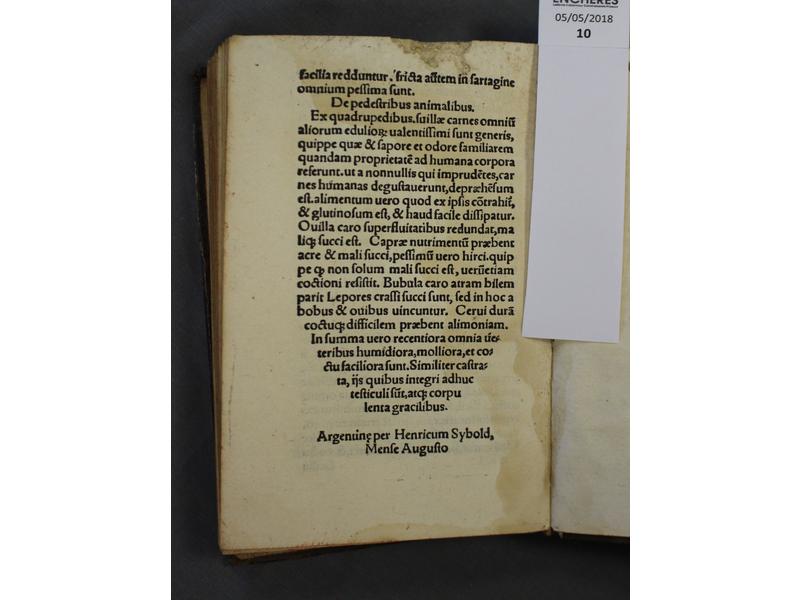 ENCHERES
05/05/2018
10
facilia redduntur. fricta aũtem in sartagine
omnium pessima sunt.
De pedestribus animalibus.
Ex quadrupedibus. suillæ carnes omniũ
aliorum edulioꝝ ualentissimi sunt generis,
quippe quæ & sapore et odore familiarem
quandam proprietatē ad humana corpora
referunt. ut a nonnullis qui imprudētes, car
nes humanas degustauerunt, depræhēsum
est. alimentum uero quod ex ipsis cōtrahit̃,
& glutinosum est, & haud facile dissipatur.
Ouilla caro superfluitatibus redundat, ma
liqꝫ succi est. Capræ nutrimentũ præbent
acre & mali succi, pessimũ uero hirci. quip
pe ꝙ non solum mali succi est, uerũetiam
coctioni resistit. Bubula caro atram bilem
parit Lepores crassi succi sunt, sed in hoc a
bobus & ouibus uincuntur. Cerui durā
coctuqꝫ difficilem præbent alimoniam.
In summa uero recentiora omnia ue-
teribus humidiora, molliora, et co-
ctu faciliora sunt. Similiter castra-
ta, ijs quibus integri adhuc
testiculi sũt, atqꝫ corpu
lenta gracilibus.
Argentinę per Henricum Sybold,
Mense Augusto